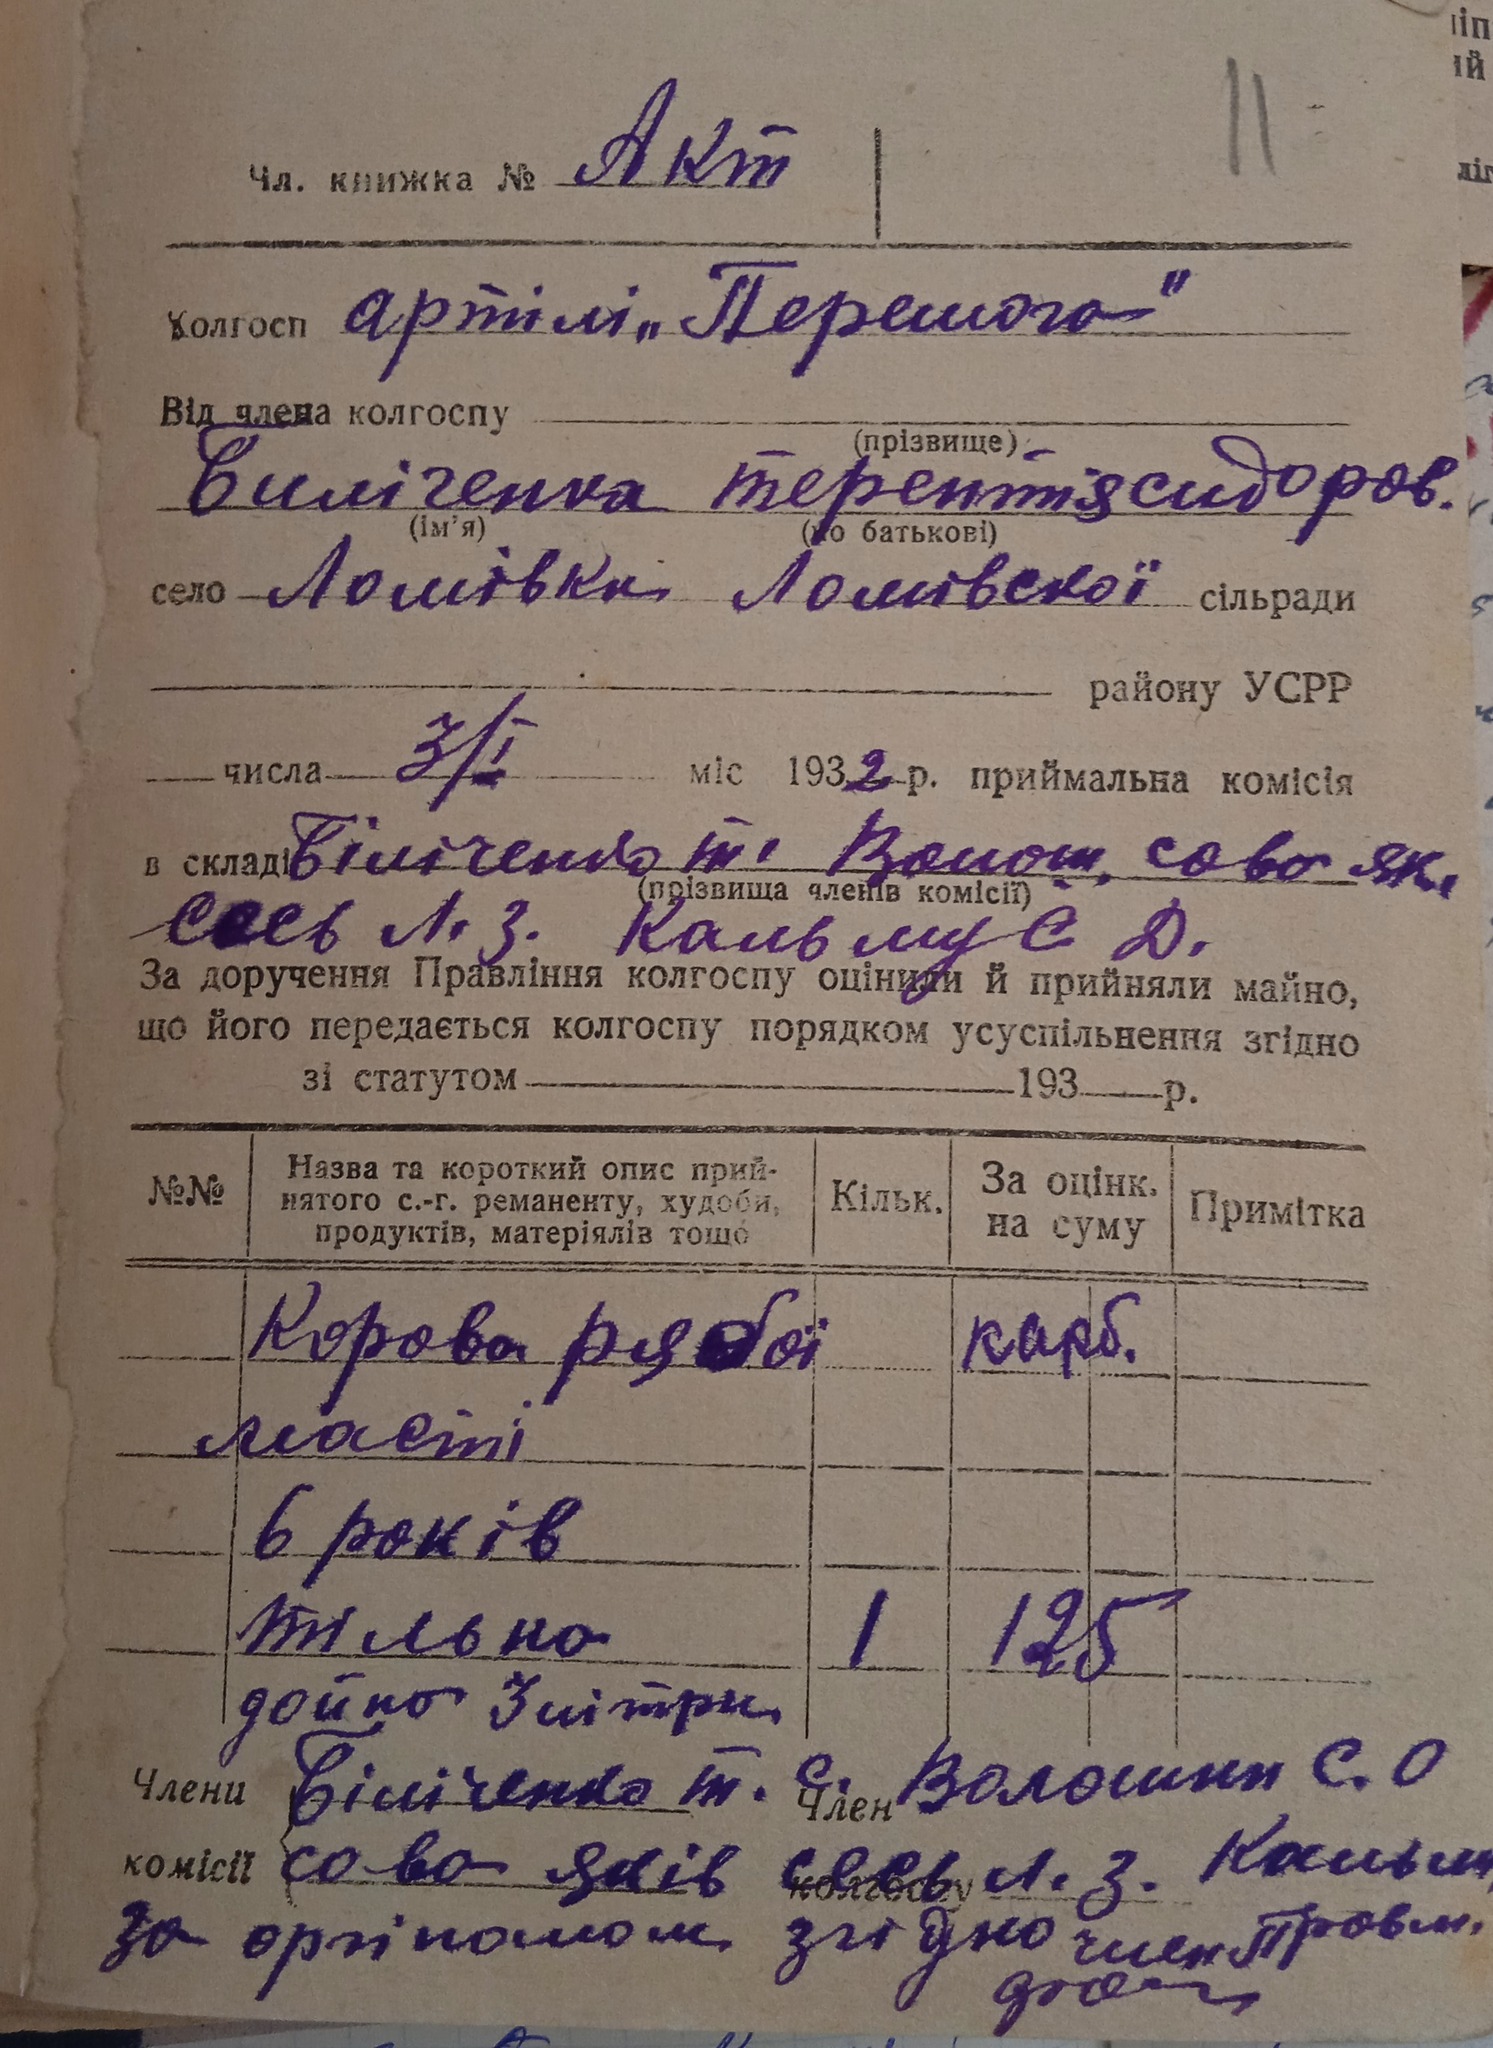 11
Чл. книжка № Акт
Колгосп артілі „Перемога"
Від члена колгоспу
(прізвище)
Биліченка терентія сидоров.
(ім'я) (по батькові)
село Ломівка Ломівскої сільради
району УСРР
числа 3/I міс 1932 р. приймальна комісія
в складі Біліченко т. Волош, сова як.
(прізвища членів комісії)
Л. З. Кальму Є Д.
За доручення Правління колгоспу оцінили й прийняли майно,
що його передається колгоспу порядком усуспільнення згідно
зі статутом 193 р.
№№ Назва та короткий опис прий-
нятого с.-г. реманенту, худоби,
продуктів, матеріялів тощо
Кільк. За оцінк.
на суму
Примітка
Корова рябої карб.
масті
6 років
тільна 1 125
дойна 3 літри
Члени Біліченко т. с. Член Волошин С. О
комісії сова яків колгоспу Л. З. Кальм
за оригіналом згідно член Правл.